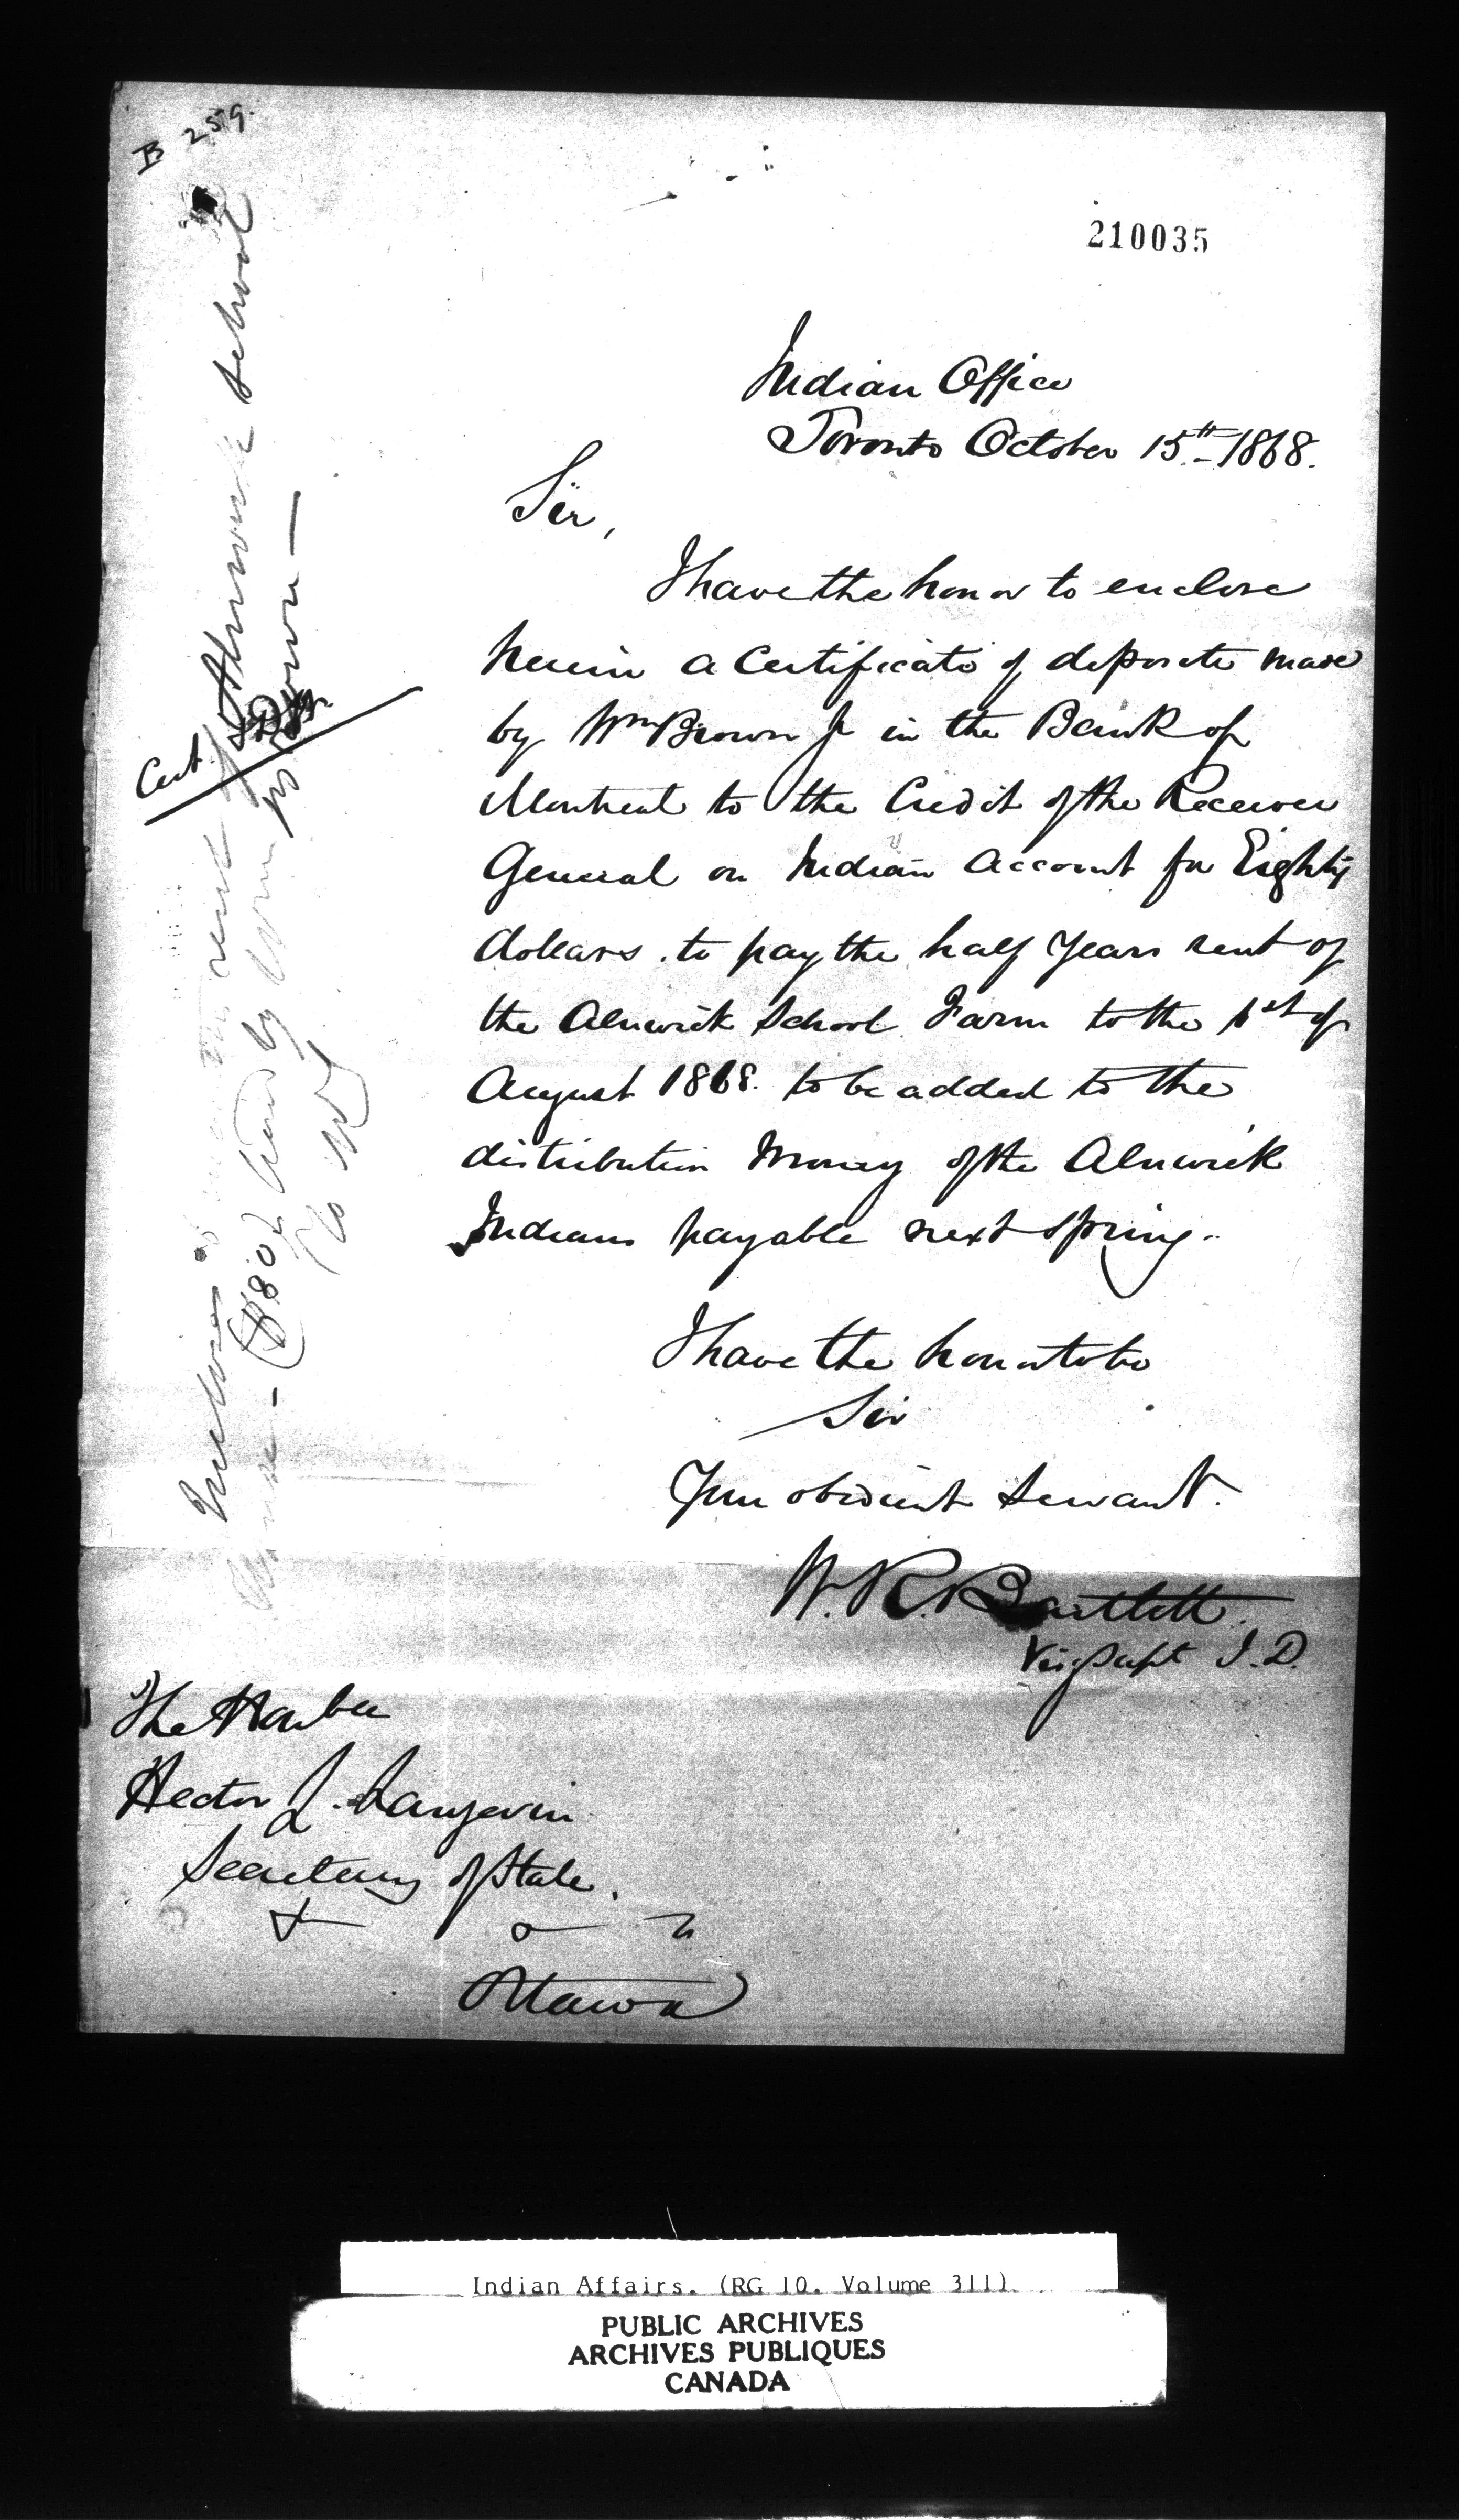 B 259.
210035
Indian Office
Toronto October 15th 1868.
Sir,
I have the honor to enclose
herein a Certificate of deposite made
by Wm Brown Jr in the Bank of
Montreal to the Credit of the Receiver
General on Indian Account for Eighty
dollars. to pay the half Years rent of
the Alnwick School Farm to the 1st of
August 1868. to be added to the
distribution Money of the Alnwick
Indians payable next spring.
I have the honor to be
Sir
Your obedient Servant.
W. R. Bartlett.
Vis Supt I.D.
The Honble
Hector L. Langevin
Secretary of State.
Ottawa
Cert.
Encloses
rent Alnwick School
($80) by Brown
Indian Affairs. (RG 10. Volume 311)
PUBLIC ARCHIVES
ARCHIVES PUBLIQUES
CANADA